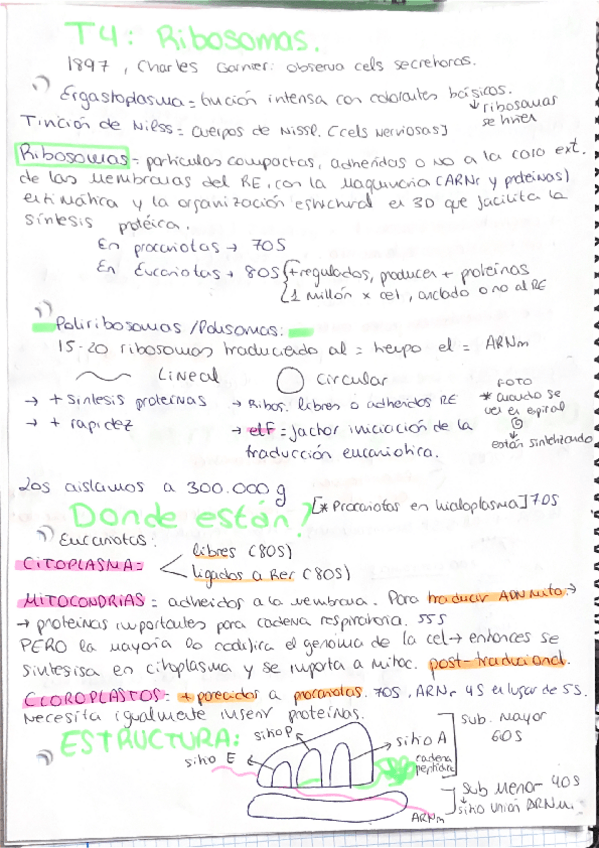 T4: Ribosomas.
1897, Charles Garnier: observa cels secretoras.
Ergastoplasma = tinción intensa con colorantes básicos.
↓ ribosomas
se tiñen
Tinción de Nilss = cuerpos de Nissl. [cels nerviosas]
Ribosomas = partículas compactas, adheridas o no a la cara ext.
de las membranas del RE, con la maquinaria (ARNr y proteínas)
enzimática y la organización estructural en 3D que facilita la
síntesis protéica.
En procariotas → 70S
En Eucariotas → 80S { + regulados, producen + proteínas
1 millón x cel, anclado o no al RE
Poliribosomas / Polisomas:
15-20 ribosomas traduciendo al = tiempo el = ARNm
Lineal
Circular
→ + síntesis proteínas
→ + rapidez
→ Ribos. libres o adheridos RE
→ eIF = factor iniciación de la
traducción eucariotica.
FOTO
* cuando se
ven en espiral
↓
están sintetizando
Los aislamos a 300.000 g
[* Procariotas en hialoplasma] 70S
Donde están?
Eucariotas:
CITOPLASMA =
libres (80S)
ligados a Rer (80S)
MITOCONDRIAS = adheridos a la membrana. Para traducir ADNmito →
→ proteínas importantes para cadena respiratoria. 55S
PERO la mayoría lo codifica el genoma de la cel → entonces se
sintesisa en citoplasma y se importa a mitoc. post-traducional.
CLOROPLASTOS = + parecidos a procariotas. 70S. ARNr 4S en lugar de 5S.
Necesita igualmente inserir proteínas.
ESTRUCTURA:
sitio P
sitio E
sitio A
cadena
peptídica
sub. Mayor
60S
Sub Menor 40S
sitio unión ARNm
ARNm